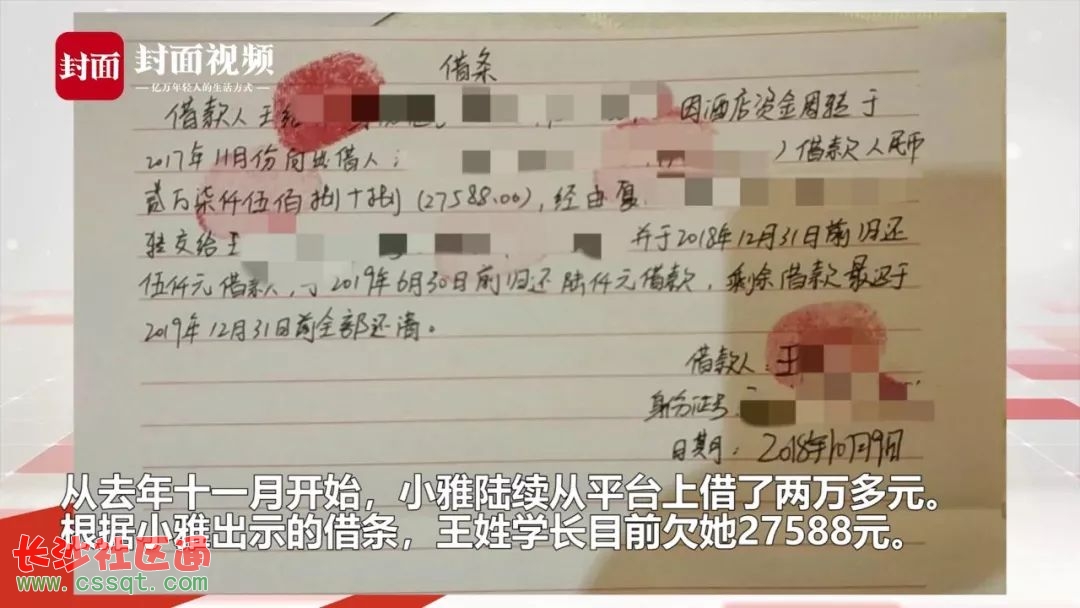 封面
封面视频
亿万年轻人的生活方式
借条
借款人王 因酒店资金周转于
2017年11月份向出借人: )借款人民币
贰万柒仟伍佰捌十捌(27588.00),经由夏
转交给王 并于2018年12月31日前归还
伍仟元借款,于2019年6月30日前归还陆仟元借款,剩余借款最迟于
2019年12月31日前全部还清。
借款人:王
身份证号:
日期:2018年10月9日
从去年十一月开始,小雅陆续从平台上借了两万多元。
根据小雅出示的借条,王姓学长目前欠她27588元。
长沙社区通
www.cssqt.com